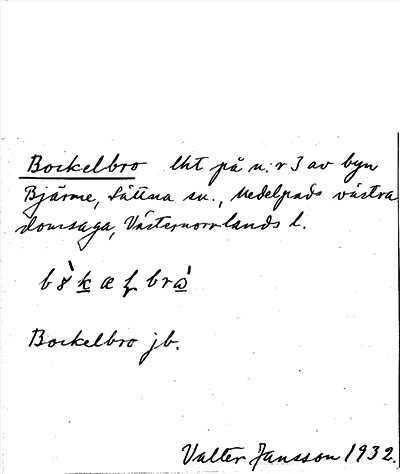 Bockelbro lht på n:r 3 av byn
Bjärme, Sättna sn., Medelpads västra
domsaga, Västernorrlands l.
Bockelbro jb.
Valter Jansson 1932.